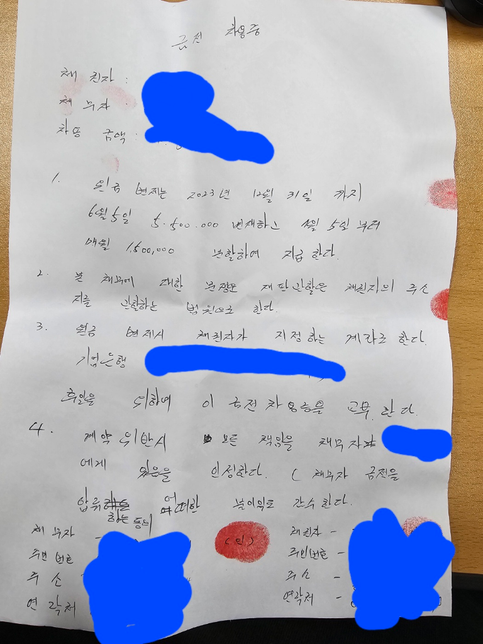 금전 차용증
채권자 :
채무자
차용 금액
1. 원금 변제는 2023년 12월 31일 까지
6월 5일 5.500.000 변제하고 4월 5일부터
매월 1,500,000 분할하여 지급 한다.
2. 본 채무에 대한 분쟁의 재판관할은 채권자의 주소
지를 관할하는 법원으로 한다
3. 원금 변제시 채권자가 지정하는 계좌로 한다.
기업은행
후일을 위하여 이 금전차용증을 교부 한다.
4. 계약위반시 모든 책임을 채무자
에게 있음을 인정한다. ( 채무자 금전을
압류하는 등의 어떠한 불이익도 감수한다.
채무자 -
주민번호
주소
연락처
(인)
채권자 -
주민번호 -
주소 -
연락처 -